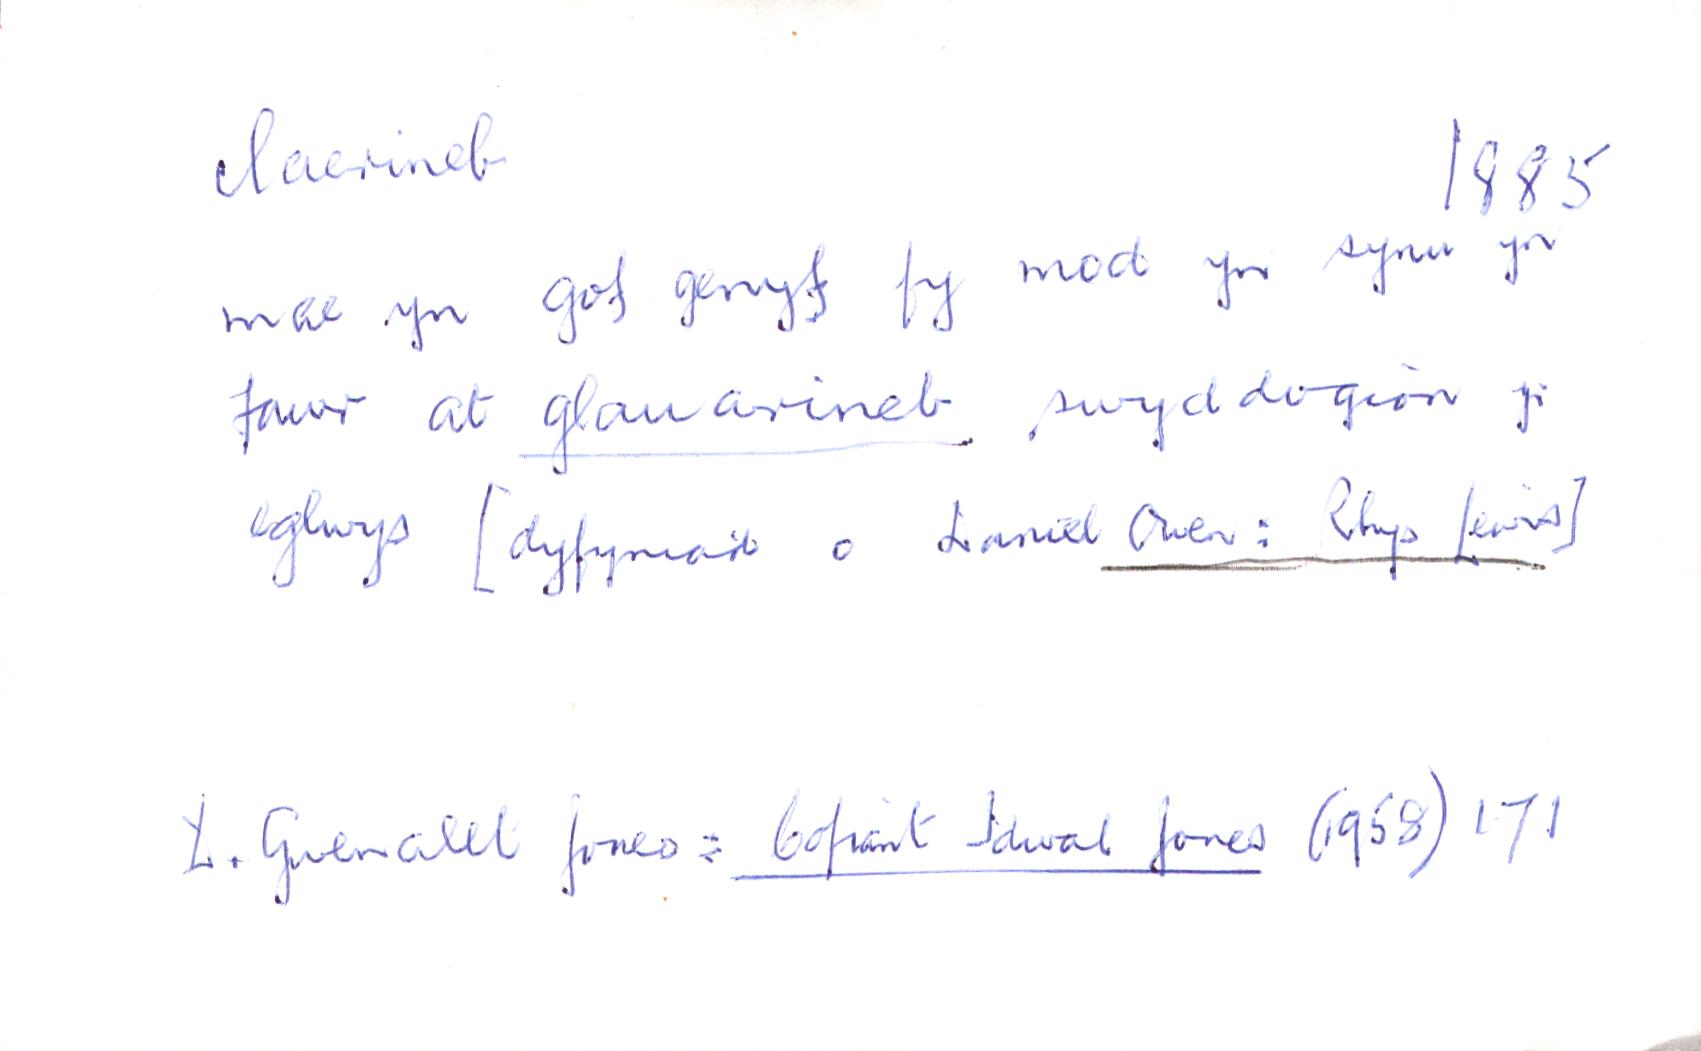 claerineb 1885
mae yn gof genyf fy mod yn synu yn
fawr at glauarineb swyddogion yr
eglwys [dyfyniad o Daniel Owen: Rhys Lewis]
D. Gwenallt Jones: Cofiant Idwal Jones (1958) 171